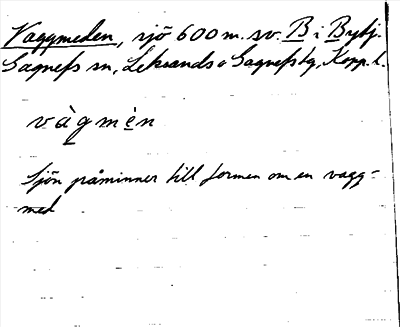 Vaggmeden, sjö 600 m. sv. B i Bykj.
Gagnefs sn, Leksands o Gagnefs tg, Kopp. l.
vàgmèn
Sjön påminner till formen om en vagg-
med